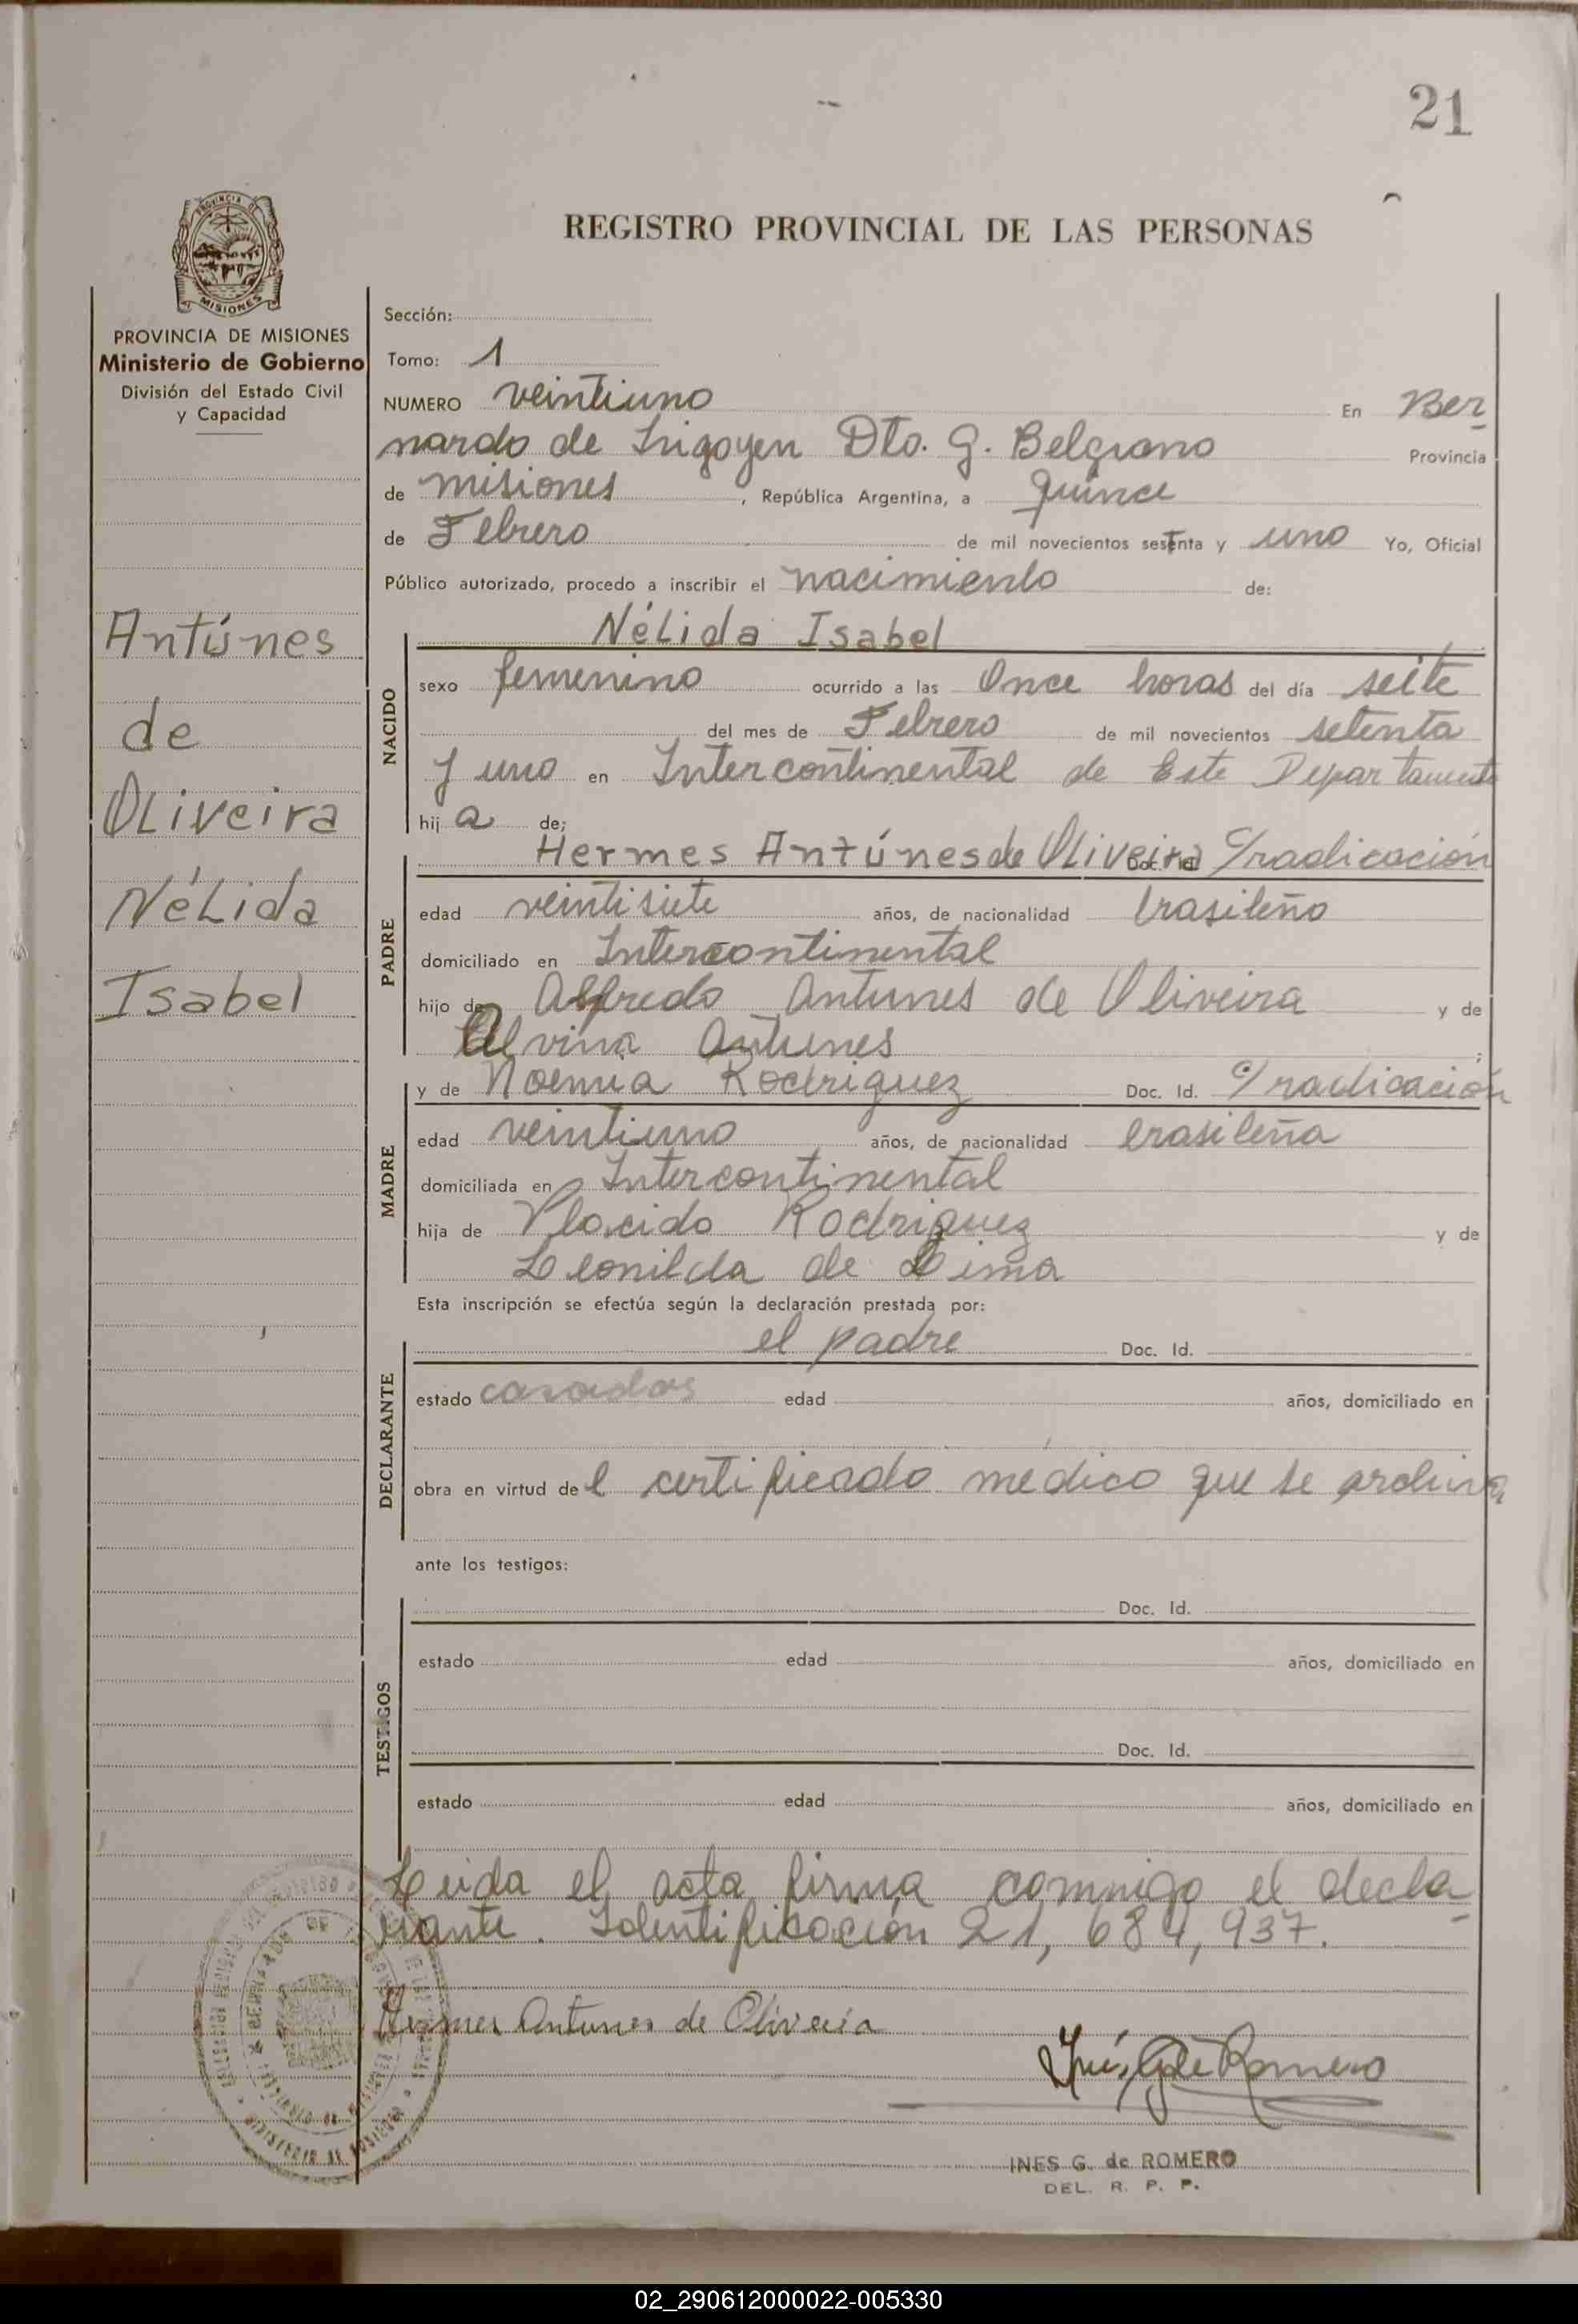 21
REGISTRO PROVINCIAL DE LAS PERSONAS
PROVINCIA DE
MISIONES
PROVINCIA DE MISIONES
Ministerio de Gobierno
División del Estado Civil
y Capacidad
Antúnes
de
Oliveira
Nélida
Isabel
Sección:
Tomo: 1
NUMERO veintiuno En Ber
nardo de Irigoyen Dto. G. Belgrano Provincia
de misiones, República Argentina, a quince
de Febrero de mil novecientos setenta y uno Yo, Oficial
Público autorizado, procedo a inscribir el nacimiento de:
NACIDO
Nélida Isabel
sexo femenino ocurrido a las Once horas del día seite
del mes de Febrero de mil novecientos setenta
y uno en Intercontinental de Este Departamento
hija de;
PADRE
Hermes Antúnes de Oliveira Doc. Id. C/radicación
edad veintisiete años, de nacionalidad brasileño
domiciliado en Intercontinental
hijo de Alfredo Antunes de Oliveira y de
Alvina Antunes ;
MADRE
y de Noemia Rodriguez Doc. Id. C/radicación
edad veintiuno años, de nacionalidad brasileña
domiciliada en Intercontinental
hija de Placido Rodriguez y de
Leonilda de Lima
Esta inscripción se efectúa según la declaración prestada por:
DECLARANTE
el padre Doc. Id.
estado casados edad años, domiciliado en
obra en virtud del certificado médico que se archiva
ante los testigos:
TESTIGOS
Doc. Id.
estado edad años, domiciliado en
Doc. Id.
estado edad años, domiciliado en
Leida el acta firma conmigo el decla
rante. Identificación 21,684,937.
Hermes Antunes de Oliveira
Inés G de Romero
INES G. de ROMERO
DEL. R. P. P.
02_290612000022-005330